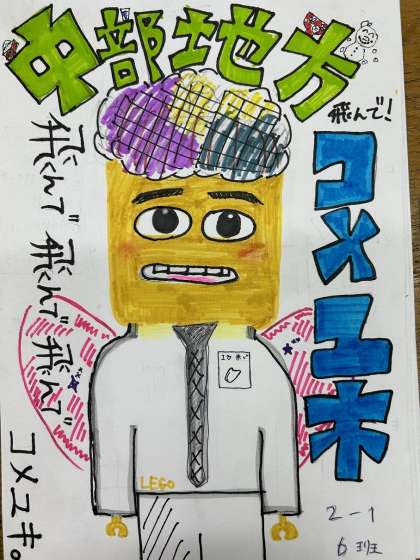 中部地方
飛んで!
コメユキ
飛んで 飛んで 飛んで
コメユキ。
LEGO
2-1
6班